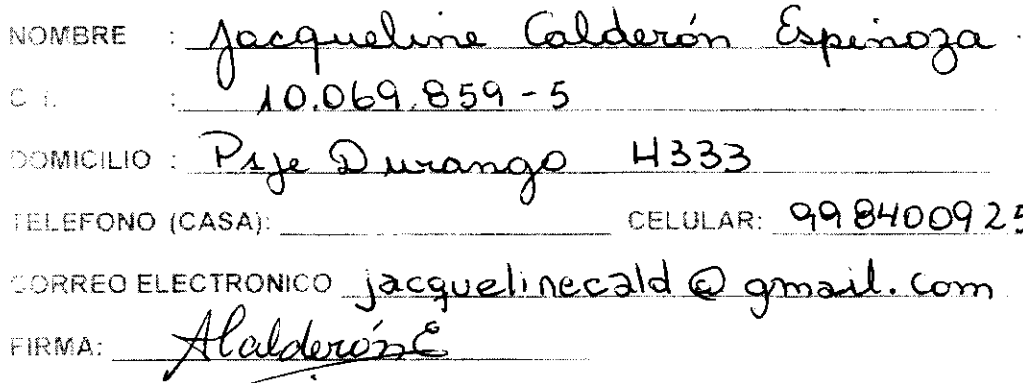 NOMBRE : Jacqueline Calderón Espinoza
C.I. : 10.069.859-5
DOMICILIO : Psje Durango 4333
TELEFONO (CASA): CELULAR: 998400925
CORREO ELECTRONICO jacquelinecald@gmail.com
FIRMA: AlalderónE